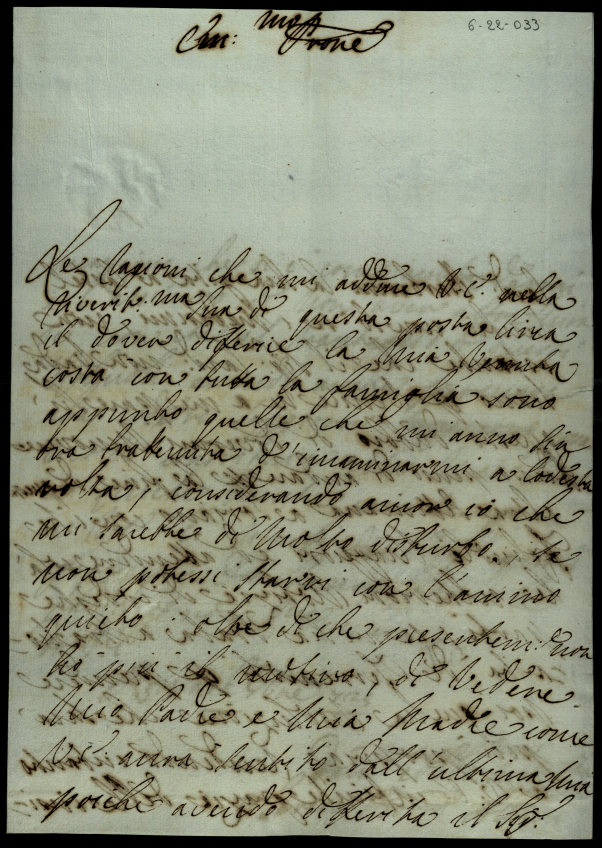 6-22-033
Car: mo Prone
Le ragioni che mi adduce V. E. nella
riverit: ma Sua di questa posta circa
il dover differire la mia venuta
costà con tutta la famiglia sono
appunto quelle che mi anno fin
ora trattenuta d'incaminarmi a codesta
volta, considerando ancor io che
mi sarebbe di molto disturbo. se
non potessi starvi con l'animo
quieto: oltre di che presentem:e non
ho più il motivo, di vedere
mio Padre e mia Madre come
V.E. avrà sentito dall'ultima mia
poiche avendo differita il Sig.r